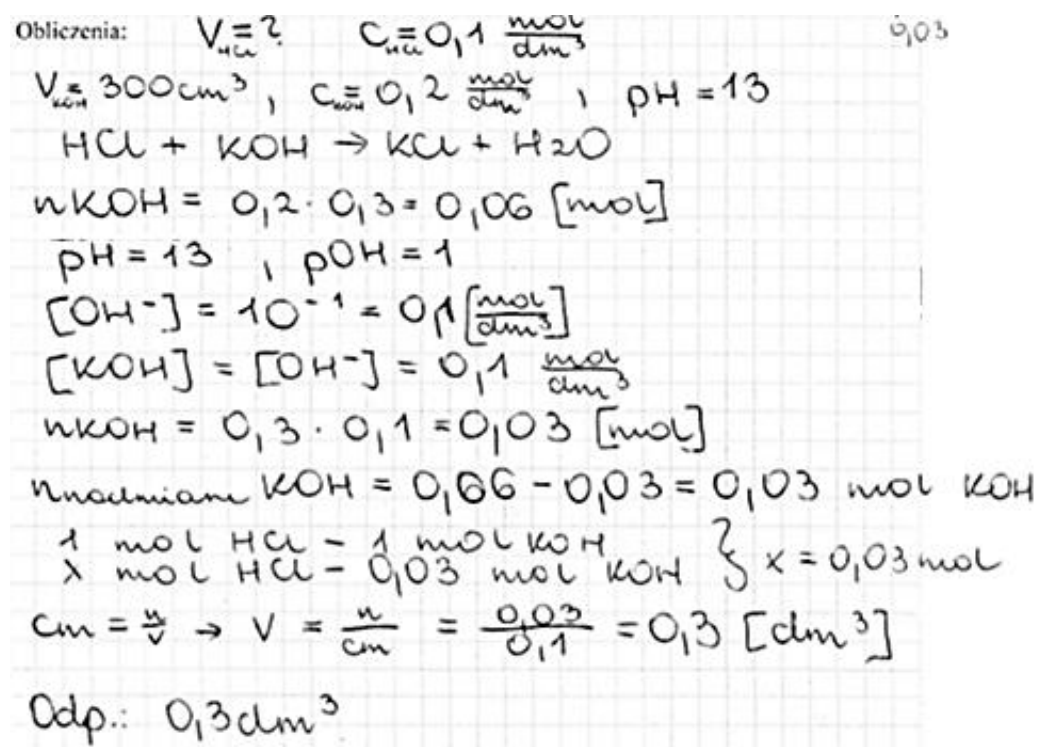 Obliczenia: V HCl = ? C HCl = 0,1 mol/dm³ 0,03
V KOH = 300cm³, C KOH = 0,2 mol/dm³, pH = 13
HCl + KOH → KCl + H2O
nKOH = 0,2 · 0,3 = 0,06 [mol]
pH = 13, pOH = 1
[OH⁻] = 10⁻¹ = 0,1 [mol/dm³]
[KOH] = [OH⁻] = 0,1 mol/dm³
nKOH = 0,3 · 0,1 = 0,03 [mol]
nnadmiaru KOH = 0,06 - 0,03 = 0,03 mol KOH
1 mol HCl - 1 mol KOH
x mol HCl - 0,03 mol KOH } x = 0,03 mol
Cm = n/V → V = n/Cm = 0,03/0,1 = 0,3 [dm³]
Odp.: 0,3 dm³